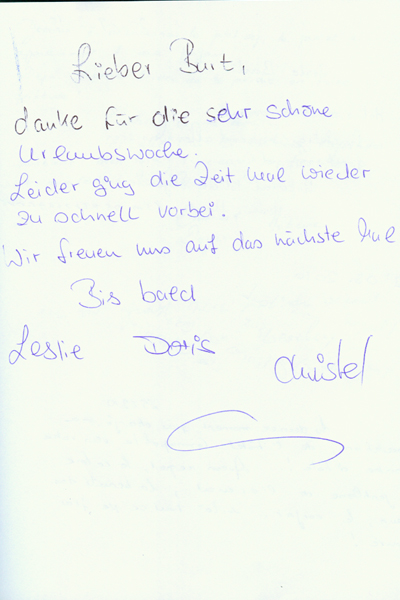 Lieber Burt,
danke für die sehr schöne
Urlaubswoche.
Leider ging die Zeit mal wieder
zu schnell vorbei.
Wir freuen uns auf das nächste Mal
Bis bald
Leslie Doris Christel